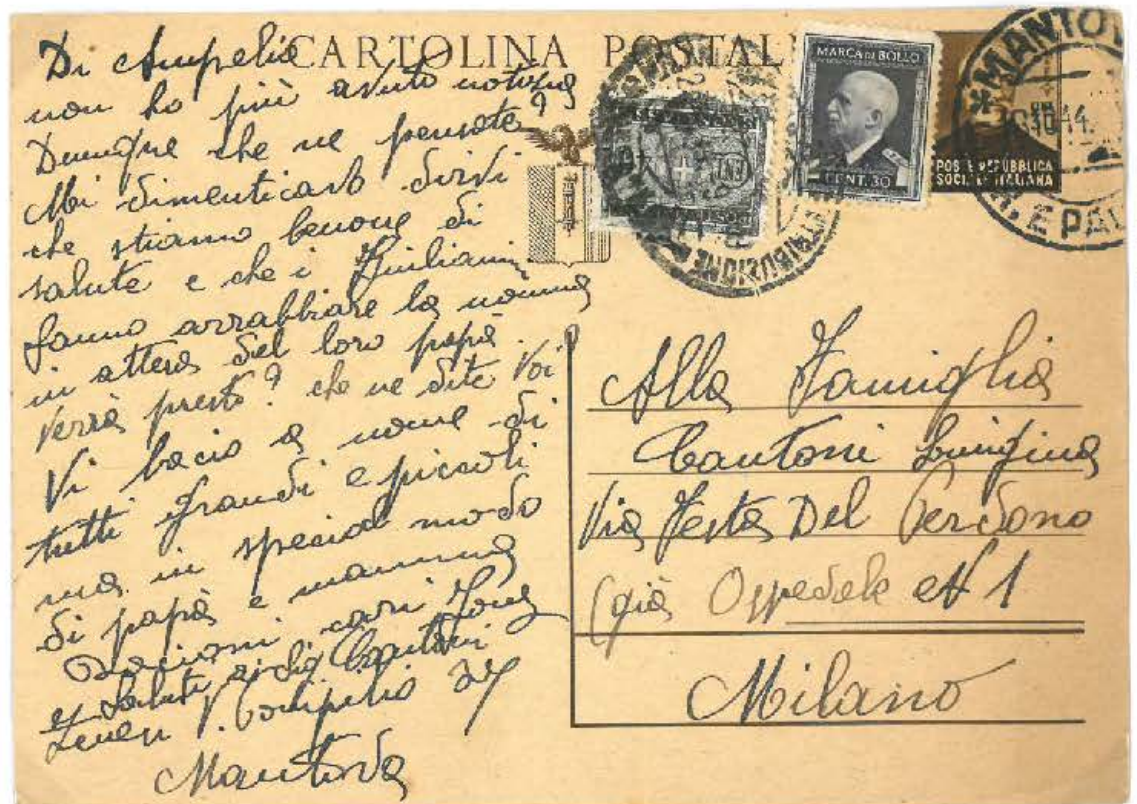 CARTOLINA POSTAL
MARCA DA BOLLO
CENT. 30
POSTE REPUBBLICA
SOCIALE ITALIANA
MANTOV
10 44
E PA
DISTRIBUZIONE
Di Ampelia
non ho più avuto notizia
Dunque che ne pensate?
Mi dimenticavo dirvi
che stiamo benone di
salute e che i Giuliani
fanno arrabbiare la nonna
in attesa del loro papà.
Verrà presto? che ne dite Voi
Vi bacio a nome di
tutti grandi e piccoli
ma in special modo
di papà e mamma
Bacioni cari
e Saluti ai Sig Cantoni
V. Pompilio 27
Mantova
Alla Famiglia
Cantoni Luigina
Via Festa Del Perdono
(già Ospedale N 1
Milano